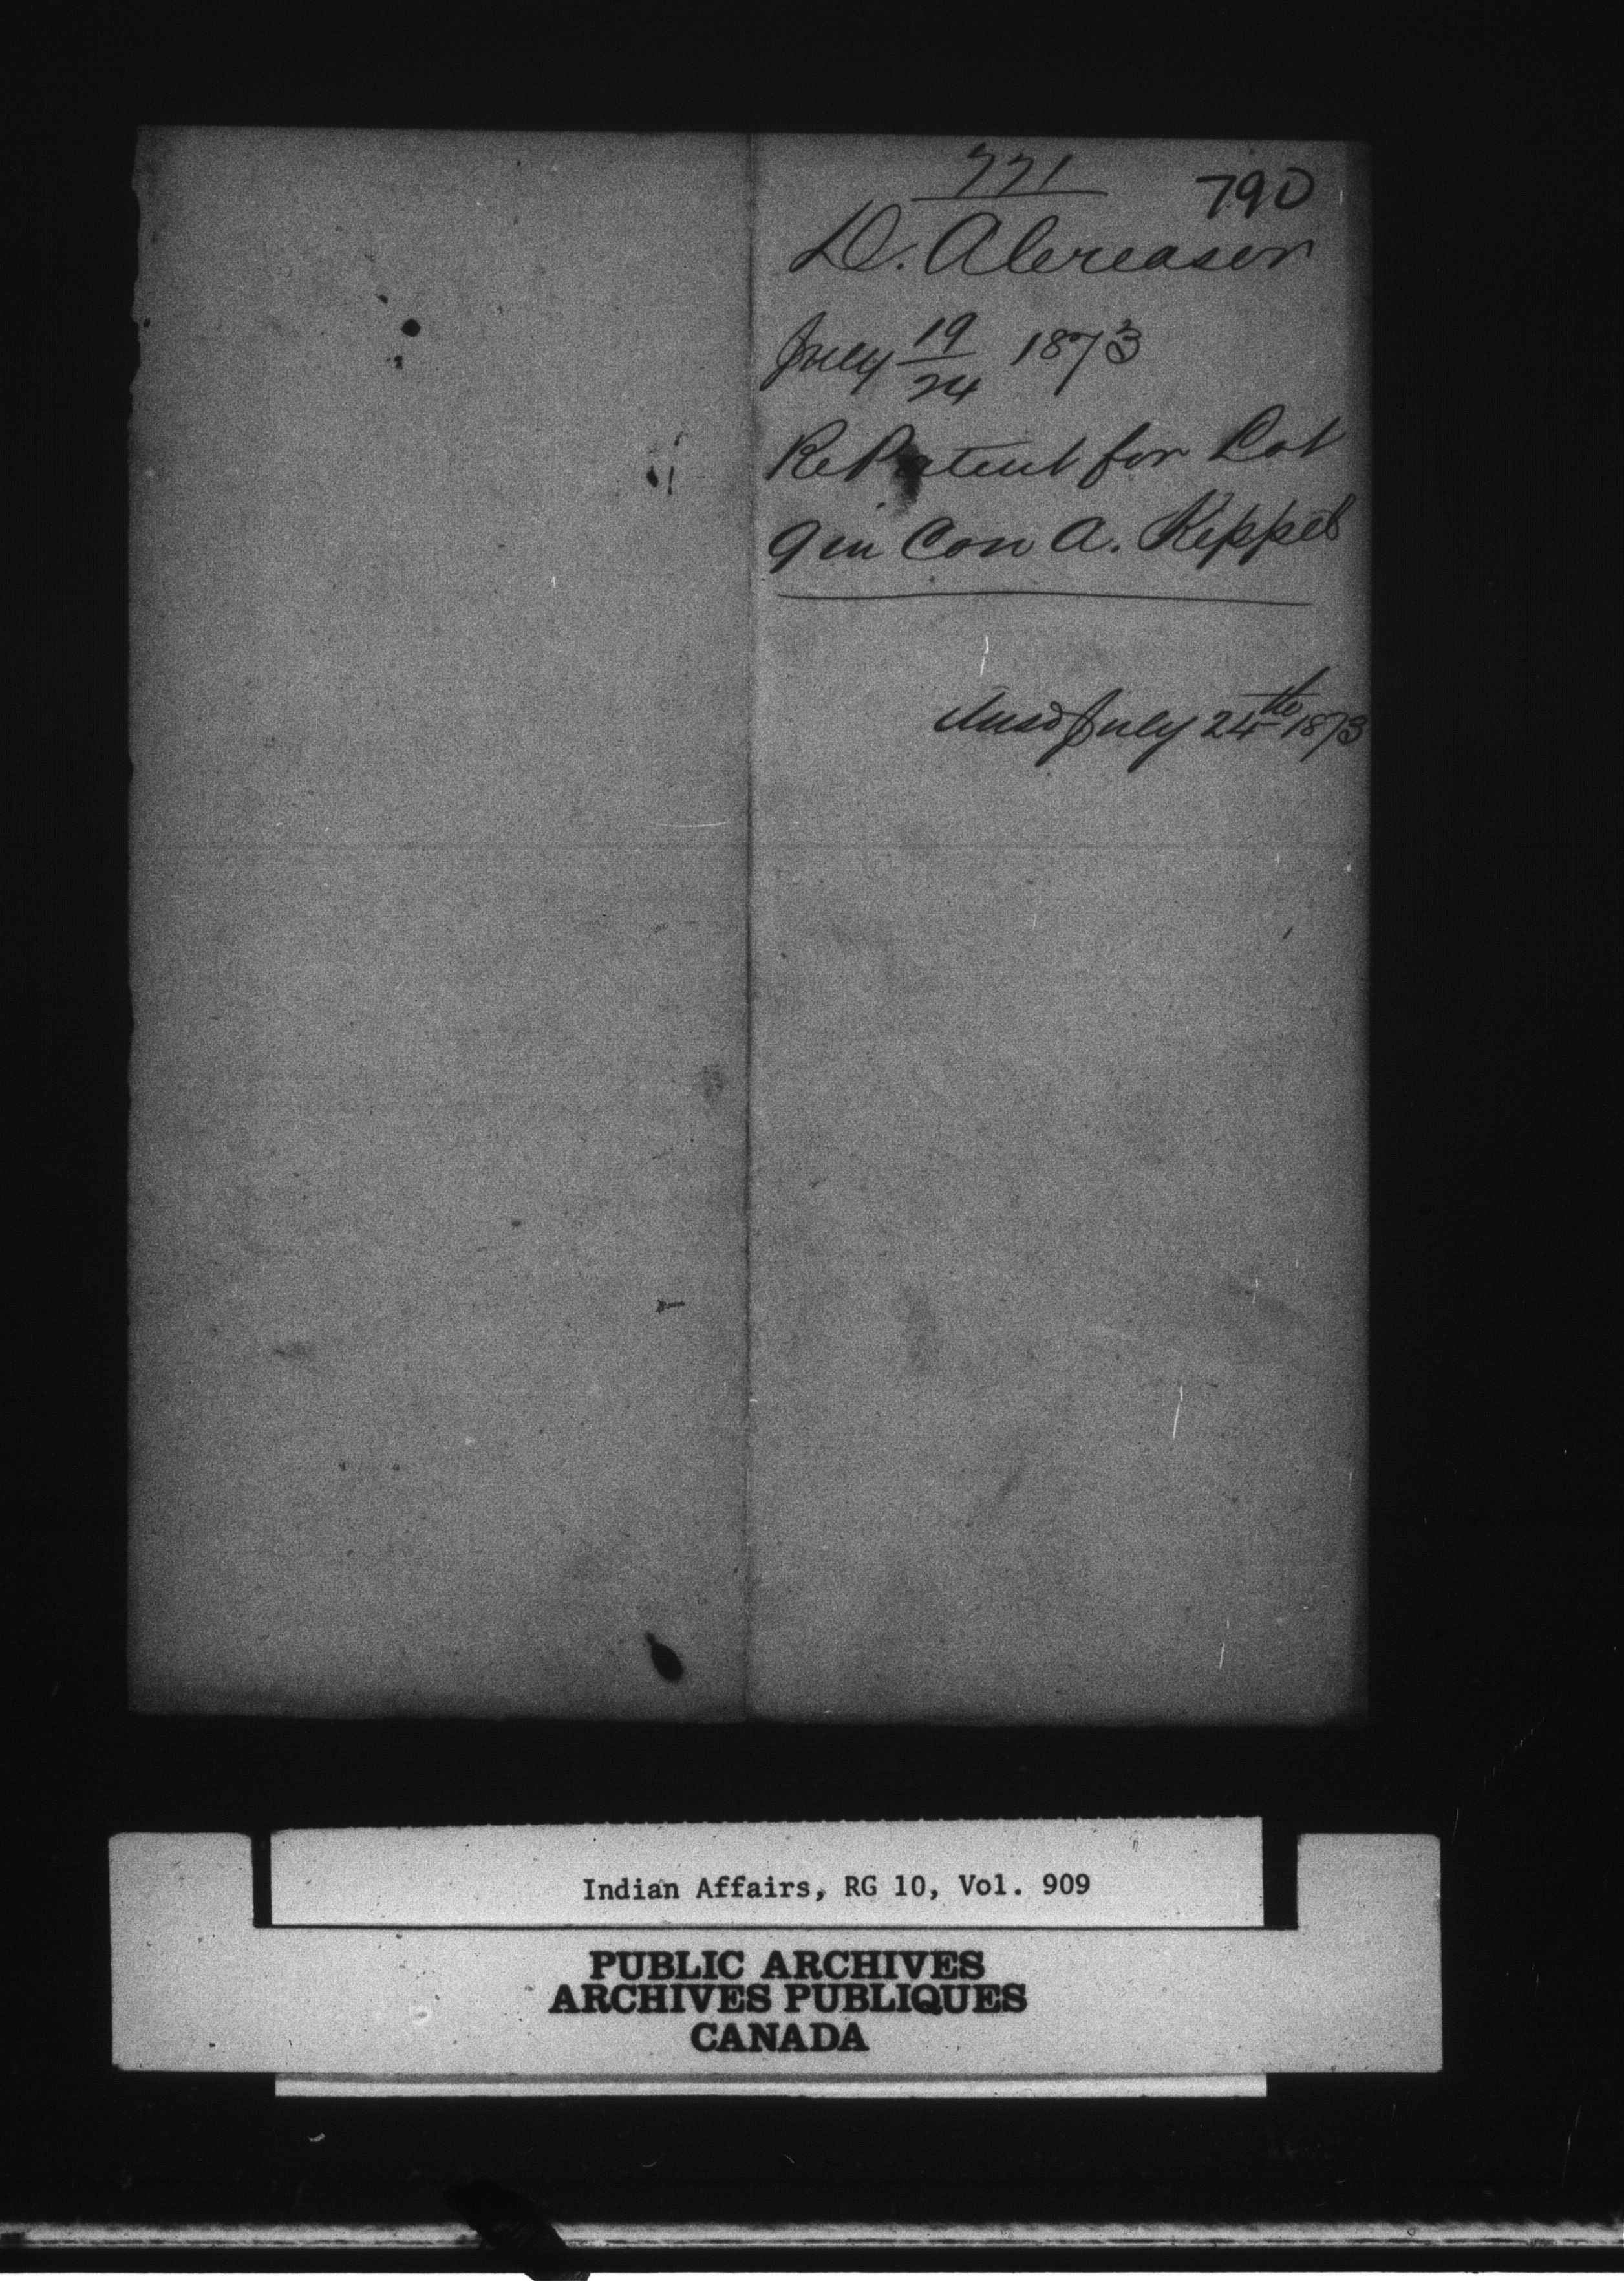 771
790
D. A. Creasor
July 19/24 1873
Re Patent for Lot
9 in Con A. Keppel
Ansd July 24th 1873
Indian Affairs, RG 10, Vol. 909
PUBLIC ARCHIVES
ARCHIVES PUBLIQUES
CANADA